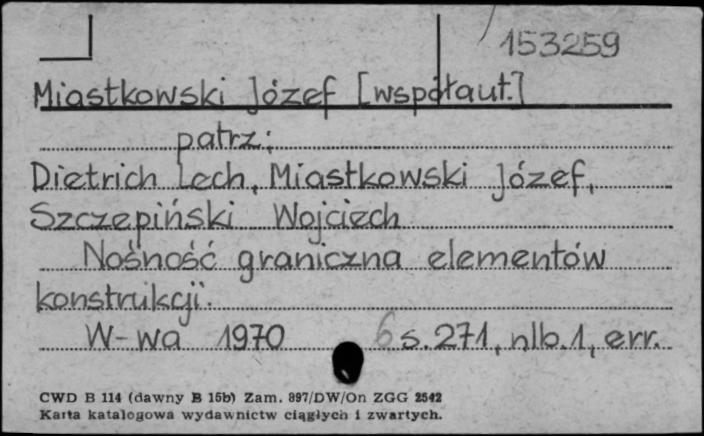 153259
Miastkowski Józef [współaut.]
patrz:
Dietrich Lech, Miastkowski Józef,
Szczepiński Wojciech
Nośność graniczna elementów
konstrukcji.
W-wa 1970 6 s. 271, nlb. 1, err.
CWD B 114 (dawny B 15b) Zam. 897/DW/On ZGG 2542
Karta katalogowa wydawnictw ciągłych i zwartych.